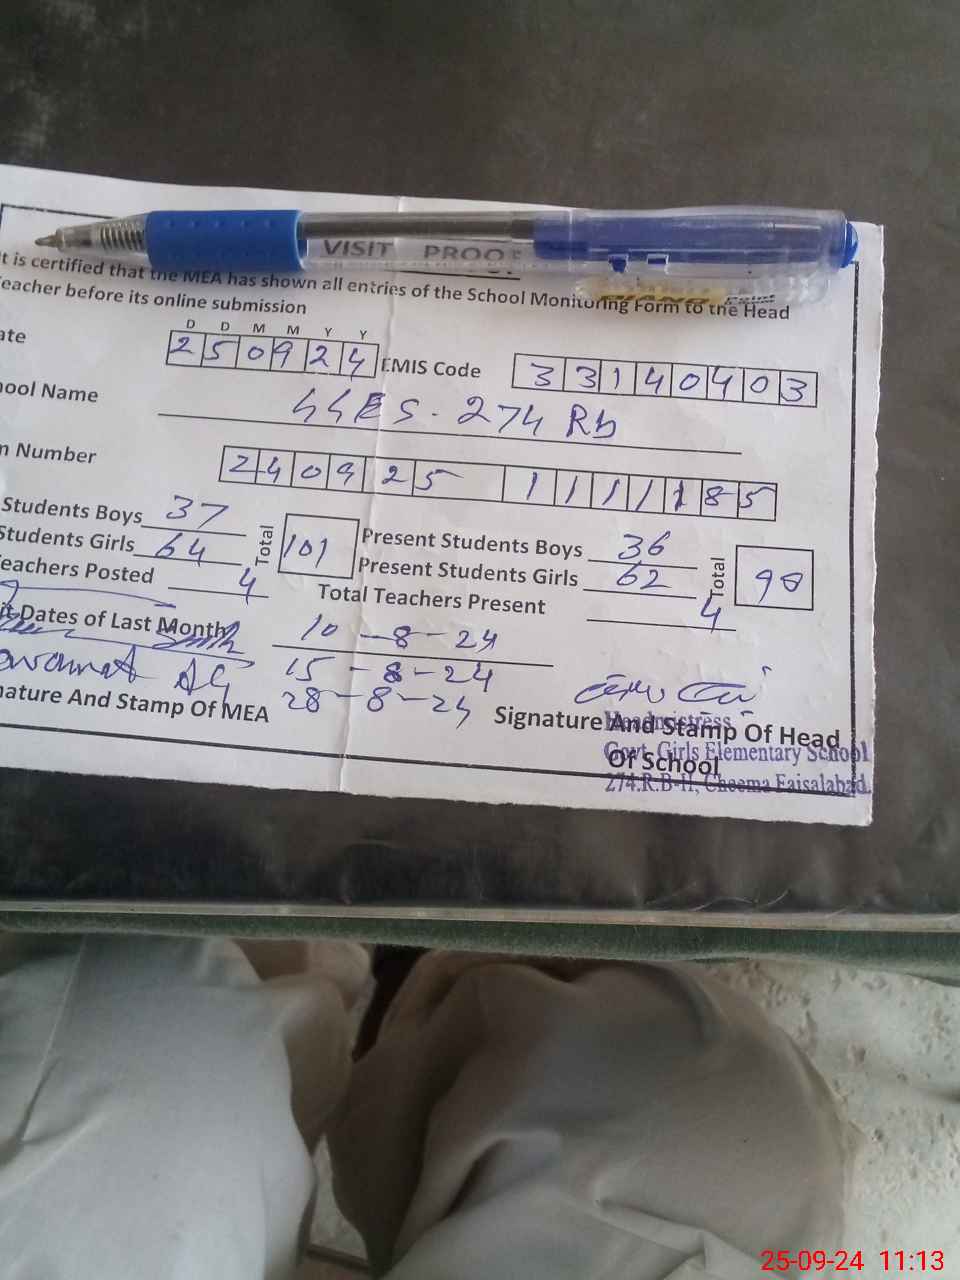 VISIT PROOF
t is certified that the MEA has shown all entries of the School Monitoring Form to the Head
eacher before its online submission
D D M M Y Y
ate 2 5 0 9 2 4 EMIS Code 3 3 1 4 0 4 0 3
ool Name GGES. 274 Rb
Number 2 4 0 9 2 5 1 1 1 1 1 8 5
Students Boys 37 Total 101 Present Students Boys 36 Total 98
Students Girls 64 Present Students Girls 62
eachers Posted 4 Total Teachers Present 4
it Dates of Last Month 10-8-24
15-8-24
28-8-24
nature And Stamp Of MEA Signature And Stamp Of Head
Of School
Headmistress
Govt. Girls Elementary School
274.R.B-II, Cheema Faisalabad.
PIANO Point
25-09-24 11:13